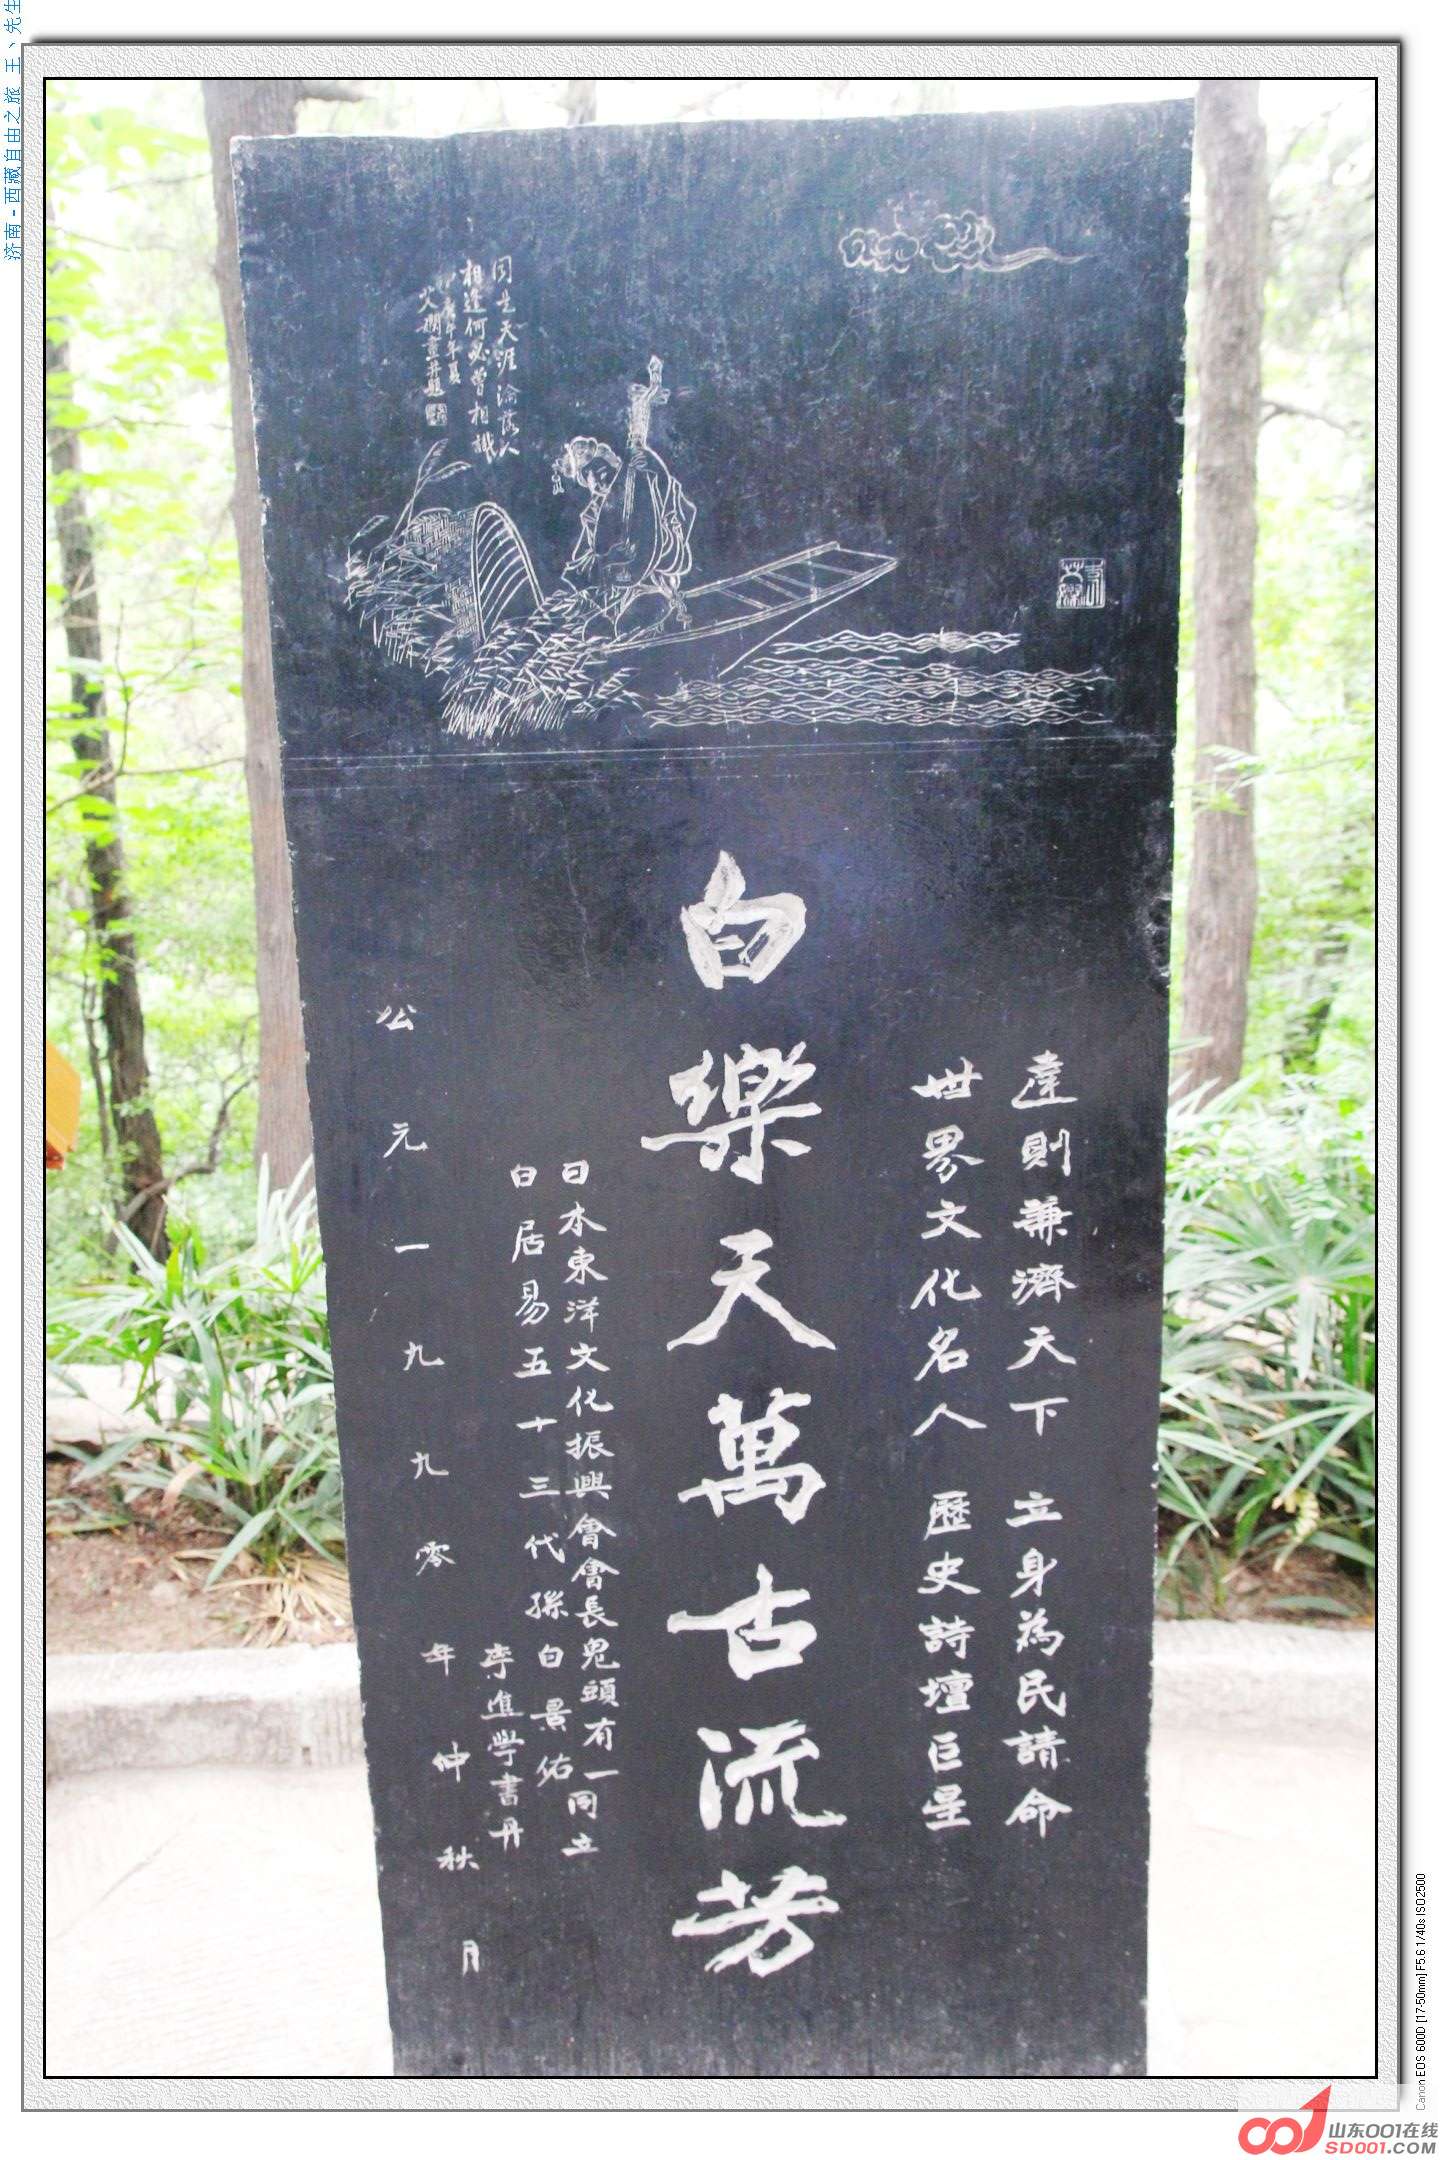 同是天涯淪落人
相逢何必曾相識
庚午年夏
畫并題
達則兼濟天下 立身為民請命
世界文化名人 歷史詩壇巨星
白樂天萬古流芳
日本東洋文化振興會會長兒頭有一同立
白居易五十三代孫白景佑
李進學書丹
公元一九九零年仲秋月
济南-西藏自由之旅 王、先生
Canon EOS 600D [17-50mm] F5.6 1/40s ISO2500
山东001在线
SD001.COM